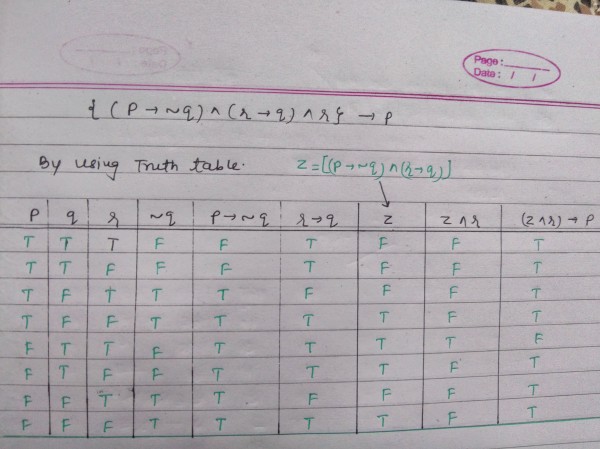 Page:
Date: / /
{ (P → ~q) ∧ (r → q) ∧ r } → P
By using Truth table. z = [(P → ~q) ∧ (r → q)]
P q r ~q P → ~q r → q z z ∧ r (z ∧ r) → P
T T T F F T F F T
T T F F F T F F T
T F T T T F F F T
T F F T T T T F T
F T T F T T T T F
F T F F T T T F T
F F T T T F F F T
F F F T T T T F T